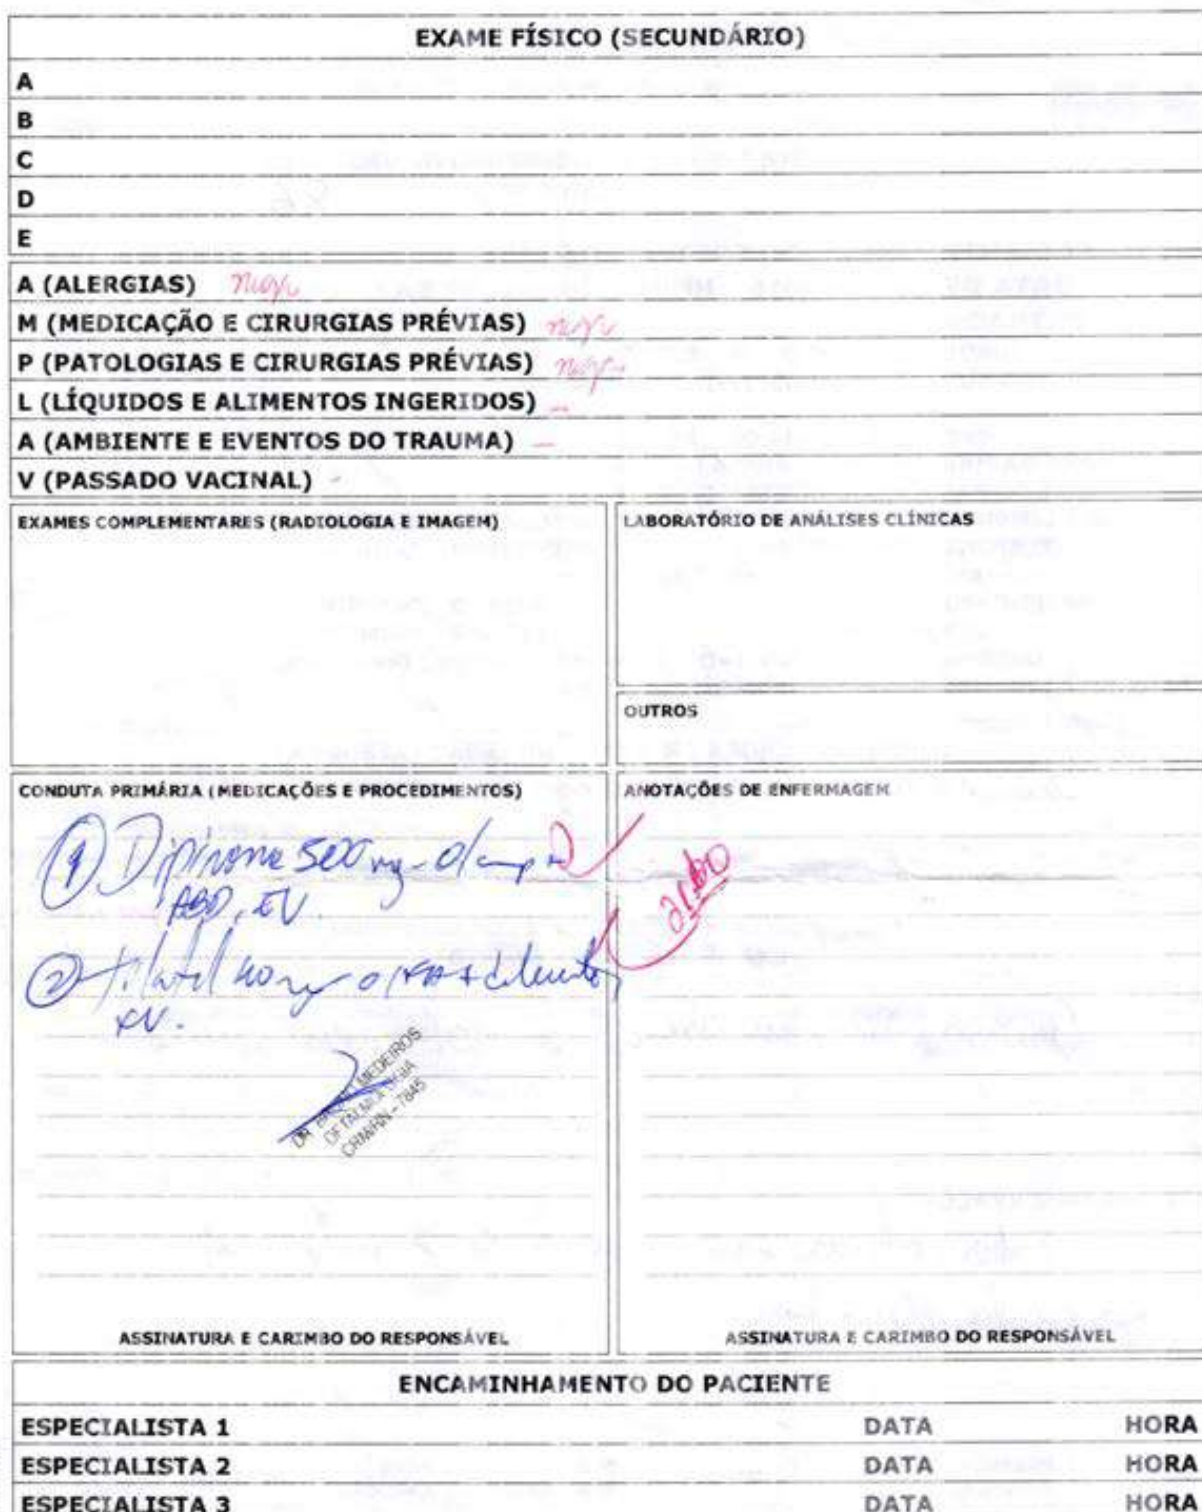 EXAME FÍSICO (SECUNDÁRIO)
A
B
C
D
E
A (ALERGIAS) nega
M (MEDICAÇÃO E CIRURGIAS PRÉVIAS) nega
P (PATOLOGIAS E CIRURGIAS PRÉVIAS) nega
L (LÍQUIDOS E ALIMENTOS INGERIDOS) -
A (AMBIENTE E EVENTOS DO TRAUMA) -
V (PASSADO VACINAL) -
EXAMES COMPLEMENTARES (RADIOLOGIA E IMAGEM)
LABORATÓRIO DE ANÁLISES CLÍNICAS
OUTROS
CONDUTA PRIMÁRIA (MEDICAÇÕES E PROCEDIMENTOS)
① Dipirona 500 mg
ABD, EV.
② tilatil 40 mg + diluente
EV.
DR. MEDEIROS
OFTALMOLOGIA
CRM/RN - 7845
ASSINATURA E CARIMBO DO RESPONSÁVEL
ANOTAÇÕES DE ENFERMAGEM
ASSINATURA E CARIMBO DO RESPONSÁVEL
ENCAMINHAMENTO DO PACIENTE
ESPECIALISTA 1 DATA HORA
ESPECIALISTA 2 DATA HORA
ESPECIALISTA 3 DATA HORA